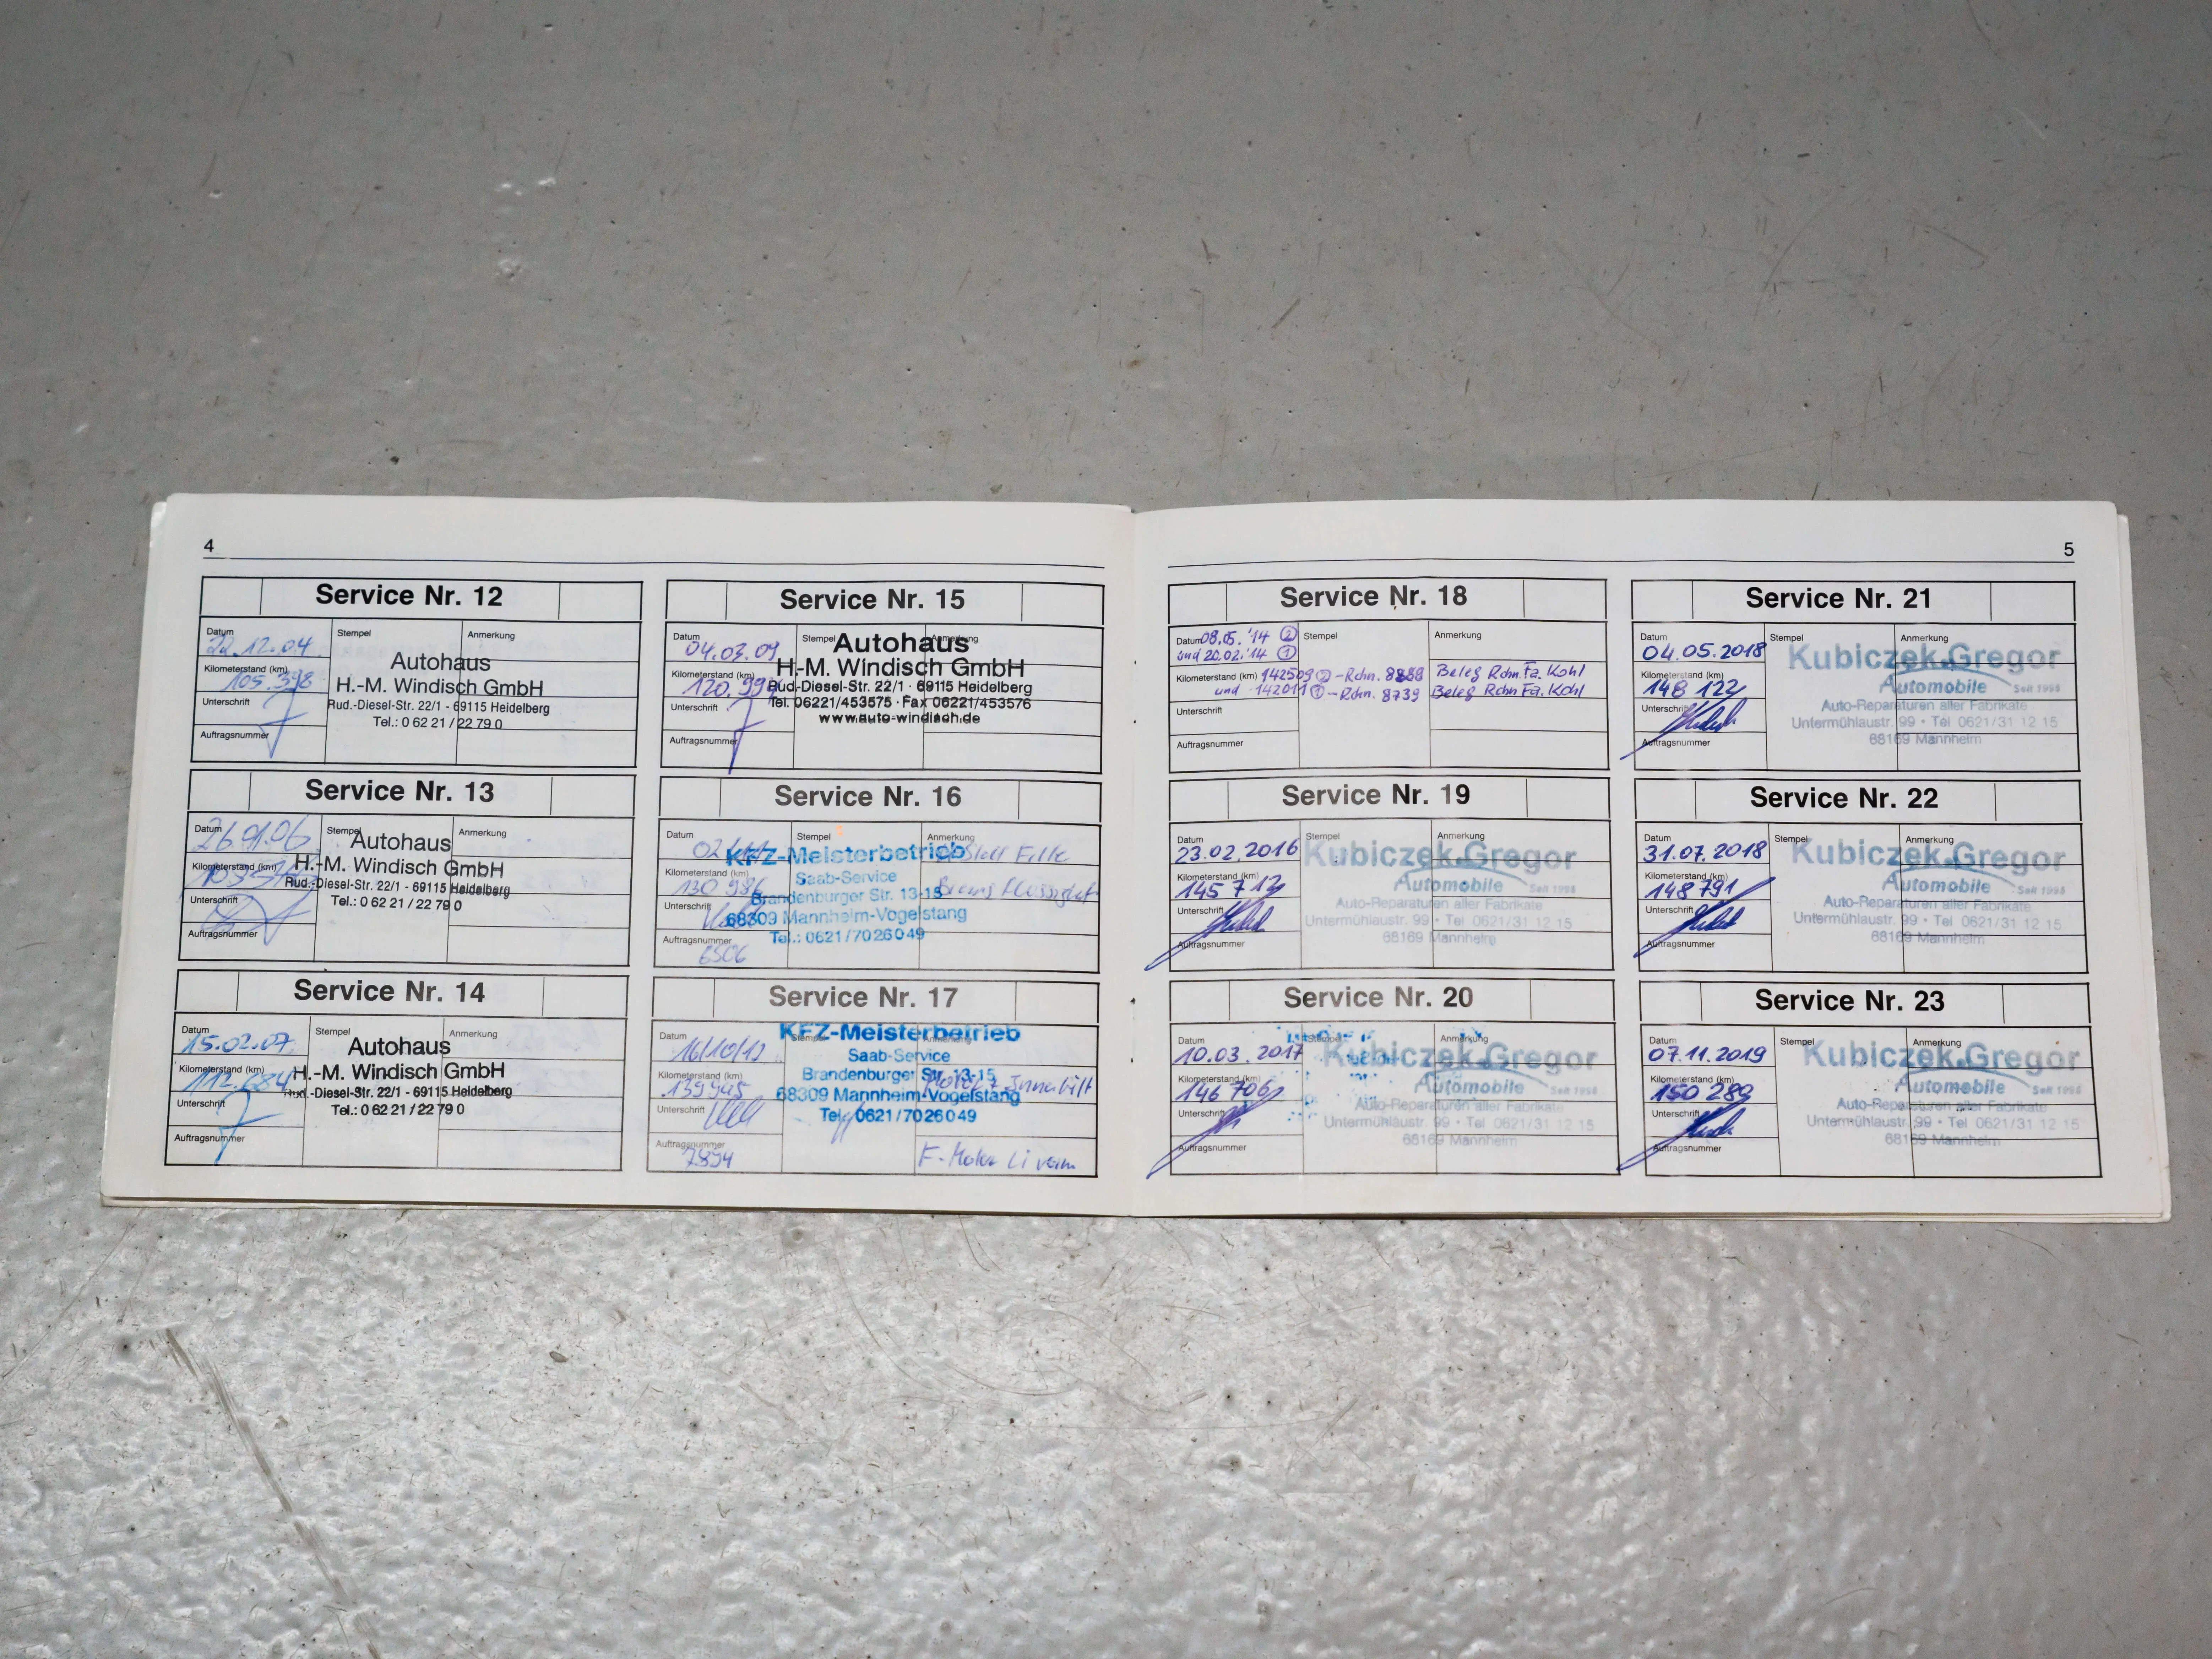 4
Service Nr. 12
Datum 22.12.04
Stempel
Anmerkung
Kilometerstand (km) 105.398
Unterschrift
Auftragsnummer
Autohaus
H.-M. Windisch GmbH
Rud.-Diesel-Str. 22/1 - 69115 Heidelberg
Tel.: 0 62 21 / 22 79 0
Service Nr. 13
Datum 26.01.06
Stempel
Anmerkung
Kilometerstand (km)
Unterschrift
Auftragsnummer
Autohaus
H.-M. Windisch GmbH
Rud.-Diesel-Str. 22/1 - 69115 Heidelberg
Tel.: 0 62 21 / 22 79 0
Service Nr. 14
Datum 15.02.07
Stempel
Anmerkung
Kilometerstand (km) 112.684
Unterschrift
Auftragsnummer
Autohaus
H.-M. Windisch GmbH
Rud.-Diesel-Str. 22/1 - 69115 Heidelberg
Tel.: 0 62 21 / 22 79 0
Service Nr. 15
Datum 04.03.09
Stempel
Anmerkung
Kilometerstand (km)
Unterschrift
Auftragsnummer
Autohaus
H.-M. Windisch GmbH
Rud.-Diesel-Str. 22/1 · 69115 Heidelberg
Tel. 06221/453575 · Fax 06221/453576
www.auto-windisch.de
Service Nr. 16
Datum
Stempel
Anmerkung
Kilometerstand (km) 130 986
Unterschrift
Auftragsnummer
6506
KFZ-Meisterbetrieb
Saab-Service
Brandenburger Str. 13-15
68309 Mannheim-Vogelstang
Tel.: 0621/7026049
Service Nr. 17
Datum 16/10/12
Stempel
Anmerkung
Kilometerstand (km) 139945
Unterschrift
Auftragsnummer
7894
KFZ-Meisterbetrieb
Saab-Service
Brandenburger Str. 13-15
68309 Mannheim-Vogelstang
Tel.: 0621/7026049
5
Service Nr. 18
Datum 08.05.'14 ②
und 20.02.'14 ①
Stempel
Anmerkung
Kilometerstand (km) 142509 ② - Rchn. 8888 Beleg Rchn. Fa. Kohl
und 142011 ① - Rchn. 8739 Beleg Rchn Fa. Kohl
Unterschrift
Auftragsnummer
Service Nr. 19
Datum 23.02.2016
Stempel
Anmerkung
Kilometerstand (km) 145 712
Unterschrift
Auftragsnummer
Kubiczek.Gregor
Automobile Seit 1998
Auto-Reparaturen aller Fabrikate
Untermühlaustr. 99 • Tel 0621/31 12 15
68169 Mannheim
Service Nr. 20
Datum 10.03.2017
Stempel
Anmerkung
Kilometerstand (km) 146 706
Unterschrift
Auftragsnummer
Kubiczek.Gregor
Automobile Seit 1998
Auto-Reparaturen aller Fabrikate
Untermühlaustr. 99 • Tel 0621/31 12 15
68169 Mannheim
Service Nr. 21
Datum 04.05.2018
Stempel
Anmerkung
Kilometerstand (km) 148 122
Unterschrift
Auftragsnummer
Kubiczek.Gregor
Automobile Seit 1998
Auto-Reparaturen aller Fabrikate
Untermühlaustr. 99 • Tel 0621/31 12 15
68169 Mannheim
Service Nr. 22
Datum 31.07.2018
Stempel
Anmerkung
Kilometerstand (km) 148 791
Unterschrift
Auftragsnummer
Kubiczek.Gregor
Automobile Seit 1998
Auto-Reparaturen aller Fabrikate
Untermühlaustr. 99 • Tel 0621/31 12 15
68169 Mannheim
Service Nr. 23
Datum 07.11.2019
Stempel
Anmerkung
Kilometerstand (km) 150 289
Unterschrift
Auftragsnummer
Kubiczek.Gregor
Automobile Seit 1998
Auto-Reparaturen aller Fabrikate
Untermühlaustr. 99 • Tel 0621/31 12 15
68169 Mannheim